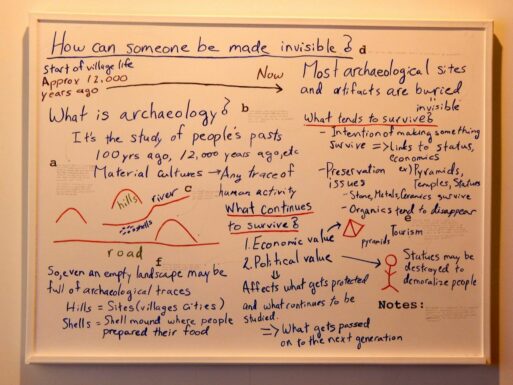 How can someone be made invisible?
d
Start of village life
Approx 12,000
years ago
Now
Most archaeological sites
and artifacts are buried
invisible
What is archaeology?
b
It's the study of people's pasts
100 yrs ago, 12,000 years ago, etc
a
Material Cultures → Any trace of
human activity
c
hills
river
shells
road
f
So, even an empty landscape may be
full of archaeological traces
Hills = Sites (villages cities)
Shells = Shell mound where people
prepared their food
What tends to survive?
- Intention of making something
survive => Links to status,
economics
- Preservation ex) Pyramids,
issues Temples, Statues
- Stone, Metals, Ceramics survive
- Organics tend to disappear
e
What continues
to survive?
1. Economic value
pyramids
Tourism
2. Political value
Statues may be
destroyed to
demoralize people
Affects what gets protected
and what continues to be
studied.
=> What gets passed
on to the next generation
Notes: